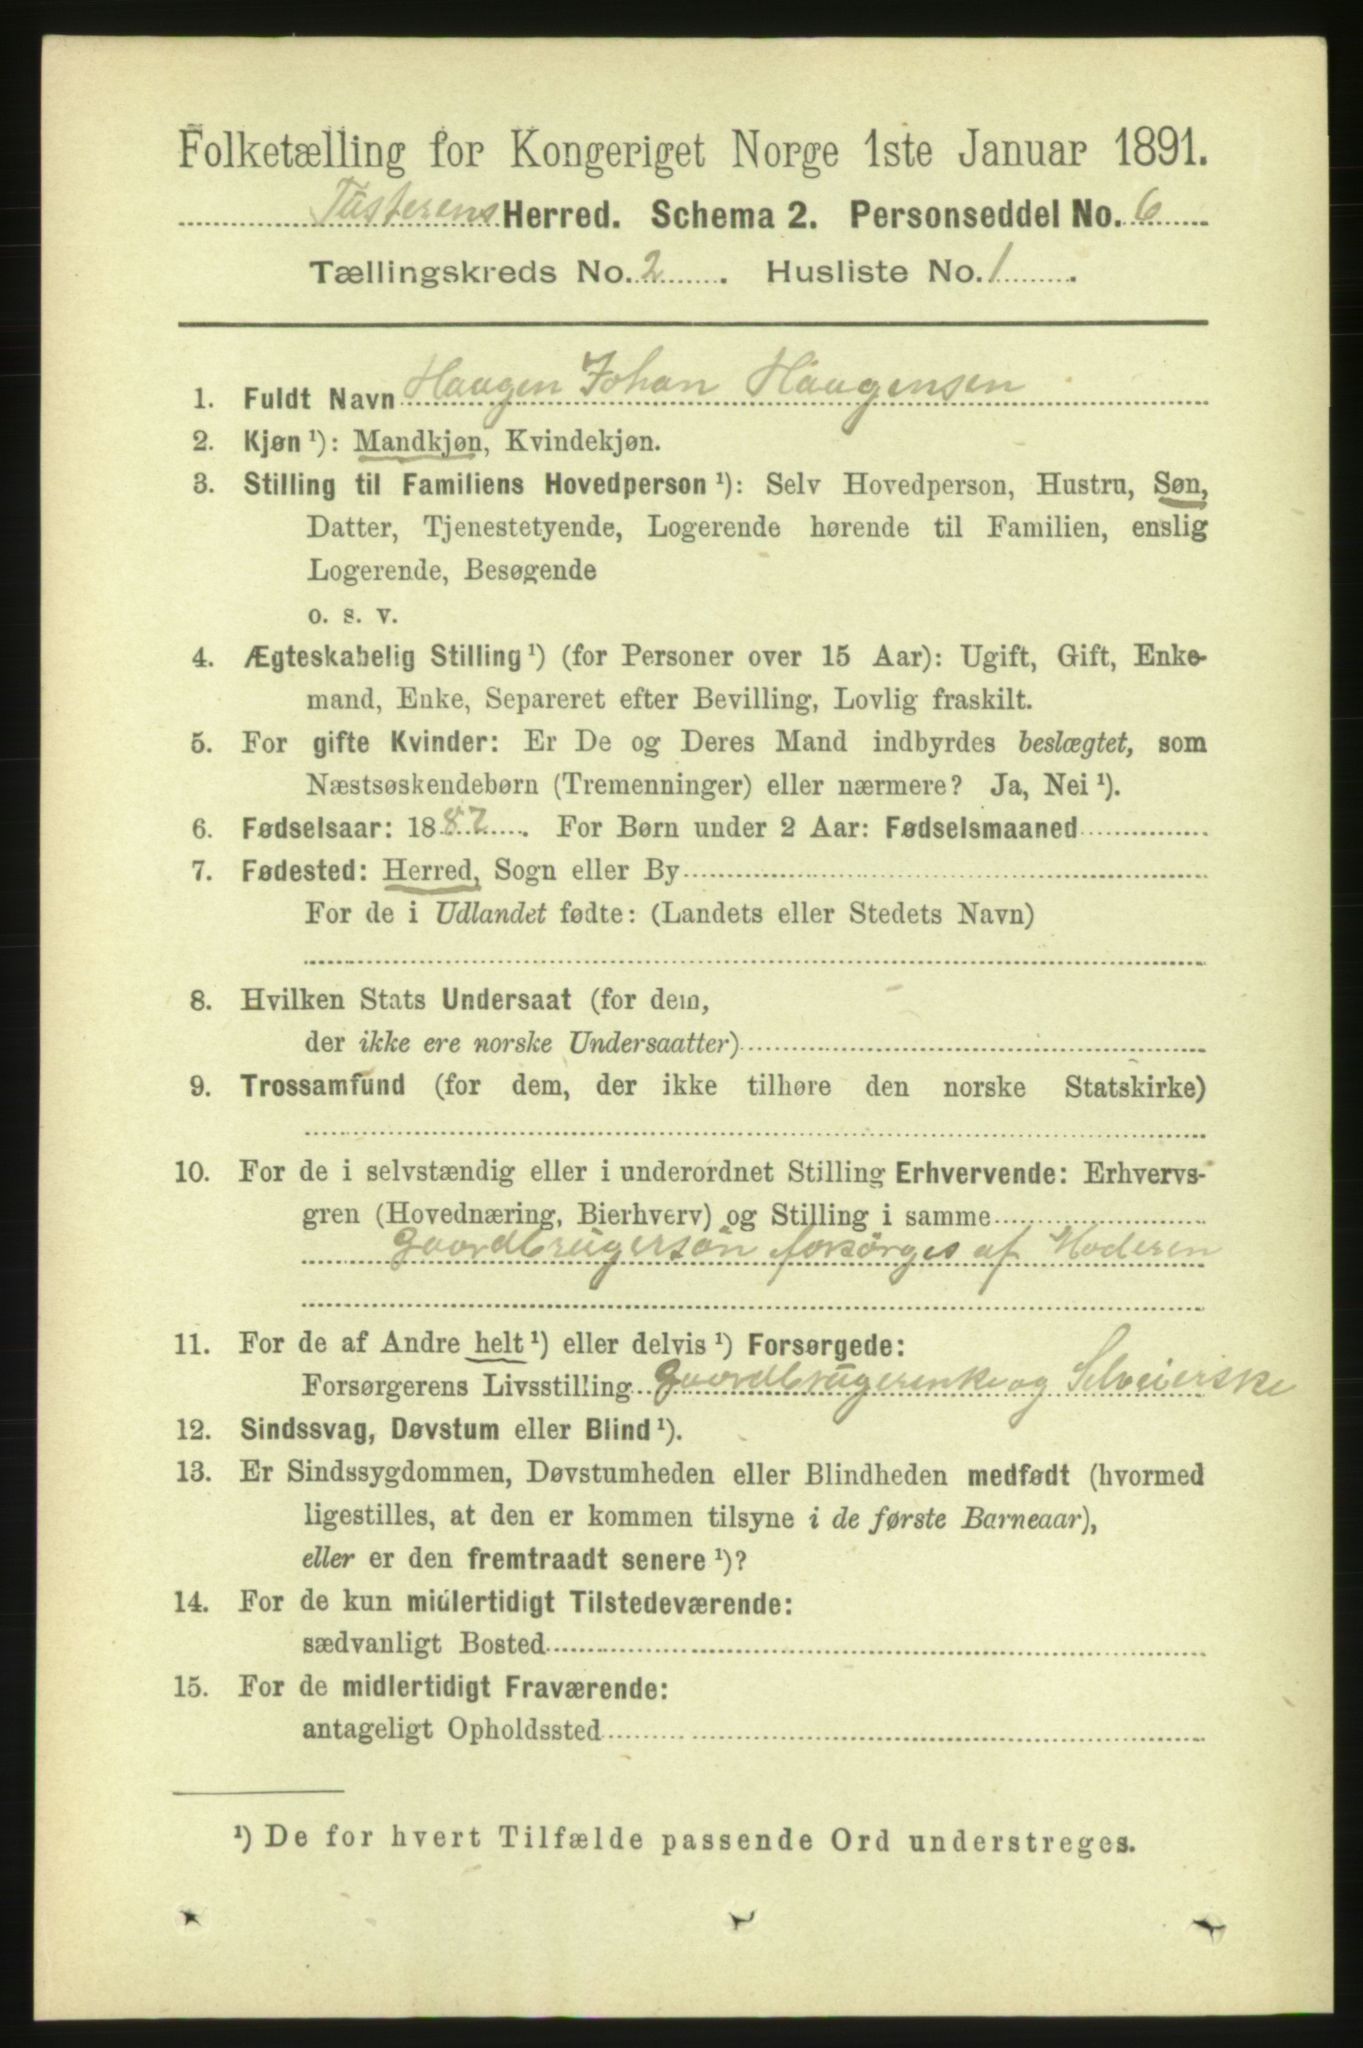 Folketælling for Kongeriget Norge 1ste Januar 1891.
Tusterens Herred. Schema 2. Personseddel No. 6
Tællingskreds No. 2. Husliste No. 1.
1. Fuldt Navn Haagen Johan Haagensen
2. Kjøn ¹): Mandkjøn, Kvindekjøn.
3. Stilling til Familiens Hovedperson ¹): Selv Hovedperson, Hustru, Søn,
Datter, Tjenestetyende, Logerende hørende til Familien, enslig
Logerende, Besøgende
o. s. v.
4. Ægteskabelig Stilling ¹) (for Personer over 15 Aar): Ugift, Gift, Enke-
mand, Enke, Separeret efter Bevilling, Lovlig fraskilt.
5. For gifte Kvinder: Er De og Deres Mand indbyrdes beslægtet, som
Næstsøskendebørn (Tremenninger) eller nærmere? Ja, Nei ¹).
6. Fødselsaar: 1882. For Børn under 2 Aar: Fødselsmaaned
7. Fødested: Herred, Sogn eller By
For de i Udlandet fødte: (Landets eller Stedets Navn)
8. Hvilken Stats Undersaat (for dem,
der ikke ere norske Undersaatter)
9. Trossamfund (for dem, der ikke tilhøre den norske Statskirke)
10. For de i selvstændig eller i underordnet Stilling Erhvervende: Erhvervs-
gren (Hovednæring, Bierhverv) og Stilling i samme
gaardbrugersøn forsørges af Moderen
11. For de af Andre helt ¹) eller delvis ¹) Forsørgede:
Forsørgerens Livsstilling gaardbrugerenke og Selveierske
12. Sindssvag, Døvstum eller Blind ¹).
13. Er Sindssygdommen, Døvstumheden eller Blindheden medfødt (hvormed
ligestilles, at den er kommen tilsyne i de første Barneaar),
eller er den fremtraadt senere ¹)?
14. For de kun midlertidigt Tilstedeværende:
sædvanligt Bosted
15. For de midlertidigt Fraværende:
antageligt Opholdssted
¹) De for hvert Tilfælde passende Ord understreges.